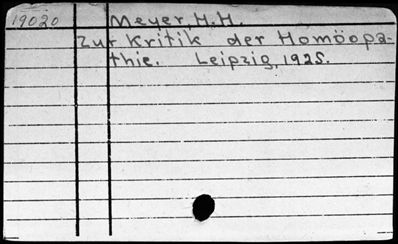 19020 Meyer, H.H.
Zur Kritik der Homöopa-
thie. Leipzig, 1925.